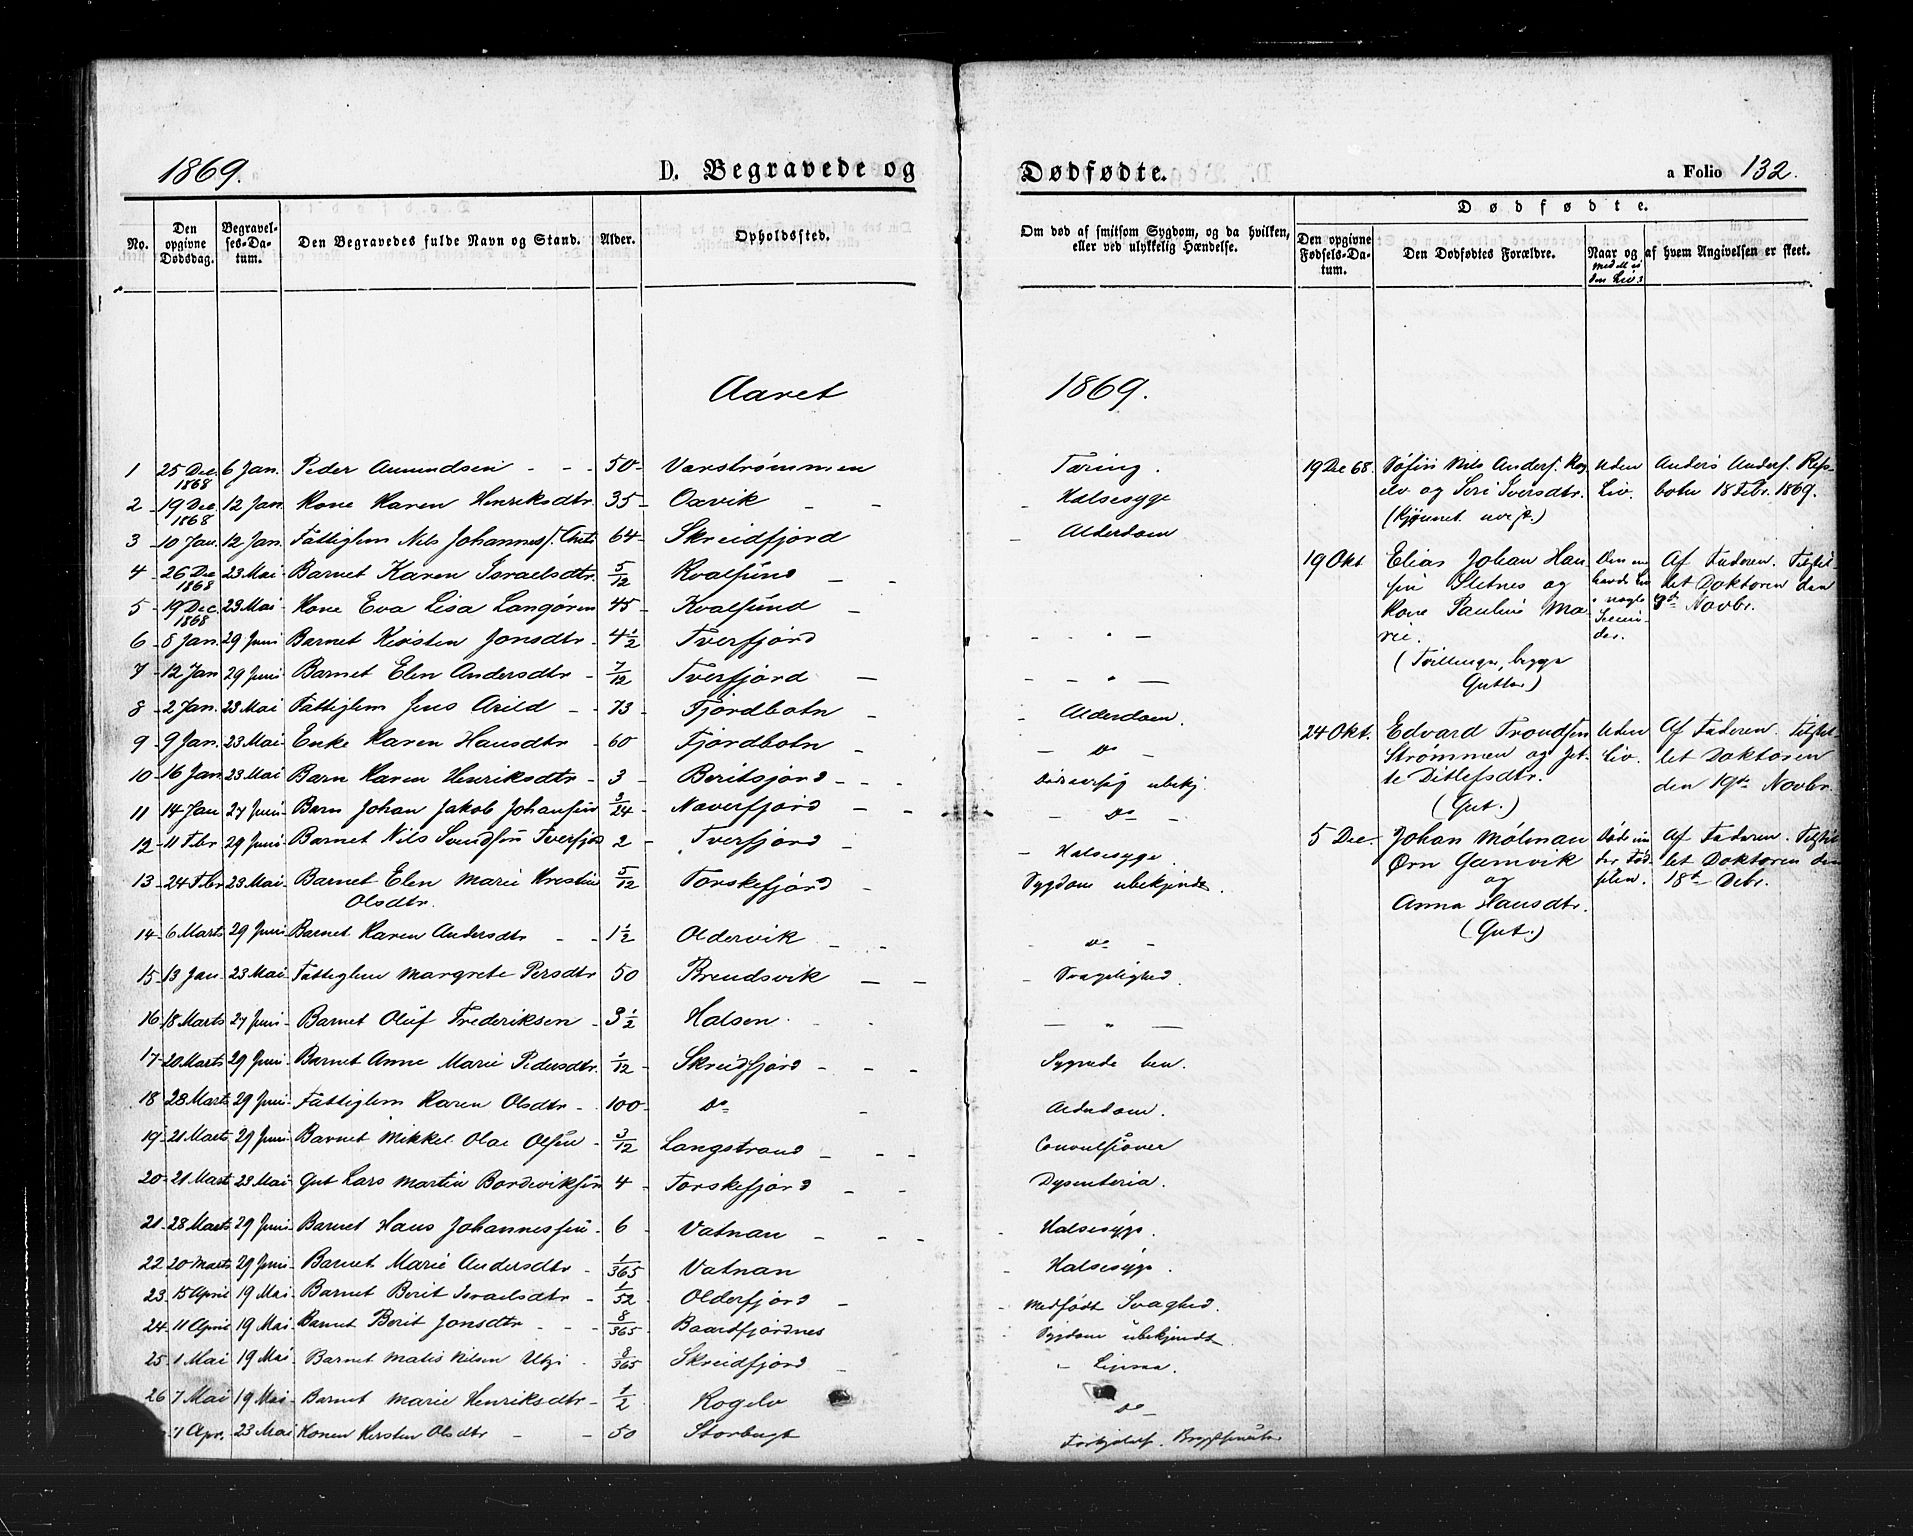 1869.
D. Begravede og
Dødfødte.
a Folio 132.
No.
Den opgivne Dødsdag.
Begravelses-Datum.
Den Begravedes fulde Navn og Stand.
Alder.
Opholdssted.
Om død af smitsom Sygdom, og da hvilken, eller ved ulykkelig Hændelse.
Dødfødte.
Den opgivne Fødsels-Datum.
Den Dødfødtes Forældre.
Naar og af hvem Angivelsen er skeet.
Aaret 1869.
1 25 Dec. 1868 6 Jan. Peder Amundsen 50 Varstrømmen Tæring.
2 19 Dec 1868 12 Jan Kone Karen Henriksdtr. 35 Oxvik Halsesyge
3 10 Jan. 12 Jan. Fattiglem Nils Johanness. 64 Skreidfjord Alderdom
4 26 Dec 1868 23 Mai Barnet Karen Israelsdtr. 5/12 Kvalsund
5 19 Dec. 1868 23 Mai Kone Eva Lisa Langøren 45 Kvalsund
6 8 Jan. 29 Juni Barnet Kirsten Jonsdtr 4 1/2 Tverfjord
7 12 Jan 29 Juni Barnet Elen Andersdtr 7/12 Tverfjord
8 2 Jan. 23 Mai Fattiglem Jens Arild 73 Fjordbotn Alderdom.
9 9 Jan. 23 Mai Enke Karen Hansdtr 60 Fjordbotn Do
10 16 Jan. 23 Mai Barn Karen Henriksdtr 3 Beritsjord ubekj.
11 14 Jan 27 Juni Barn Johan Jakob Johansen 3/24 Naverfjord Do
12 11 Febr 29 Juni Barnet Nils Svendsen Tverfjord 2 Tverfjord Halsesyge.
13 24 Febr 23 Mai Barnet Elen Marie Kristine Olsdtr. 5/12 Torskefjord Sygdom ubekjendt.
14 6 Marts 29 Juni Barnet Karen Andersdtr 1 1/2 Oldervik Do
15 13 Jan 23 Mai Fattiglem Margrete Persdtr 50 Brendsvik Svagelighed.
16 18 Marts 27 Juni Barnet Oluf Frederiksen 3 1/2 Halsen.
17 20 Marts 29 Juni Barnet Anne Marie Pedersdtr. 1/12 Skreidfjord
18 28 Marts 29 Juni Fattiglem Karen Olsdtr 100 Do Alderdom.
19 21 Marts 29 Juni Barnet Mikkel Olai Olsen 3/12 Langstrand Convulsioner
20 21 Marts 23 Mai Gut Lars Martin Bordeviksen 4 Torskefjord Dysenteria.
21 28 Marts 29 Juni Barnet Hans Johannessen 6 Vatnan Halsesyge.
22 20 Marts 29 Juni Barnet Marie Andersdtr 1/365 Vatnan Halsesyge.
23 15 April 19 Mai Barnet Berit Israelsdtr 1/52 Olderfjord Medfødt Svaghed.
24 11 April 19 Mai Barnet Berit Jonsdtr 8/365 Baardfjordnes Sygdom ubekjendt
25 1 Mai 19 Mai Barnet Matis Nilsen Utsi 8/365 Skreidfjord Ligesaa.
26 7 Mai 19 Mai Barnet Marie Henriksdtr 1/2 Rogelv Do
7 Apr. 23 Mai Konen Kirsten Olsdtr 50 Storbugt
19 Dec 68. Søfin Nils Anders. Rogelv og Siri Iversdtr. (Kjønnet uvist.) Uden Liv. Anders Anders. Repbotn 18 Febr. 1869.
19 Okt Elias Johan Hansen Sletnes og Kone Pauline Marie. (Tvillinger, begge Gutter) Af Faderen. Tilstillet Doktoren den 8de Novbr.
24 Okt. Edvard Trondsen Strømmen og Jette Ditlefsdtr. (Gut.) Uden Liv. Af Faderen. Tilstillet Doktoren den 19de Novbr.
5 Dec. Johan Mølman Ørn Gamvik og Anna Hansdtr. (Gut.) Død under Fødselen. Af Faderen. Tilstillet Doktoren den 18de Debr.